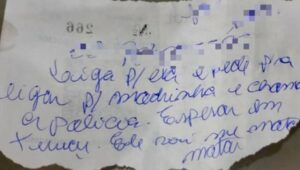 266
Liga p/ ela e pede pra
ligar p/ madrinha e chama
a polícia. Esperar em
Ele vai me mata
matar